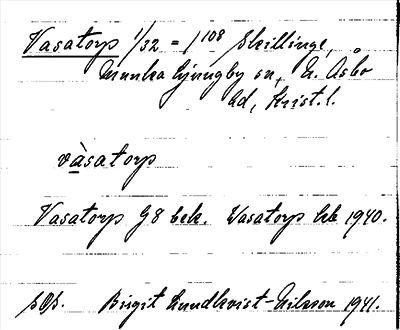 Vasatorp 1/32 = 1 108 Skillinge,
Munka Ljungby sn, N. Åsbo
hd, Krist. l.
vàsatorp
Vasatorp G8 bek. Wasatorp hk 1940.
Birgit Lundkvist-Nilsson 1941.